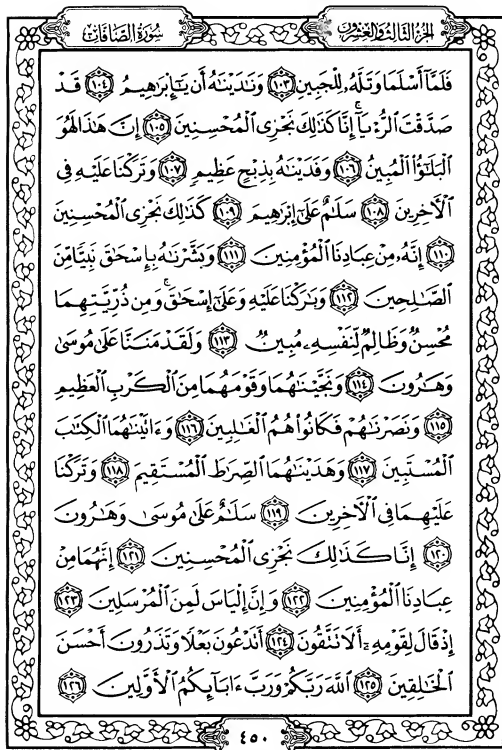 سُورَةُ الصَّافَاتِ
الجُزْءُ الثَّالِثُ وَالعِشْرُونَ
فَلَمَّآ أَسْلَمَا وَتَلَّهُۥ لِلْجَبِينِ ١٠٣ وَنَٰدَيْنَٰهُ أَن يَٰٓإِبْرَٰهِيمُ ١٠٤ قَدْ
صَدَّقْتَ ٱلرُّءْيَآ ۚ إِنَّا كَذَٰلِكَ نَجْزِى ٱلْمُحْسِنِينَ ١٠٥ إِنَّ هَٰذَا لَهُوَ
ٱلْبَلَٰٓؤُا۟ ٱلْمُبِينُ ١٠٦ وَفَدَيْنَٰهُ بِذِبْحٍ عَظِيمٍ ١٠٧ وَتَرَكْنَا عَلَيْهِ فِى
ٱلْءَاخِرِينَ ١٠٨ سَلَٰمٌ عَلَىٰٓ إِبْرَٰهِيمَ ١٠٩ كَذَٰلِكَ نَجْزِى ٱلْمُحْسِنِينَ
١١٠ إِنَّهُۥ مِنْ عِبَادِنَا ٱلْمُؤْمِنِينَ ١١١ وَبَشَّرْنَٰهُ بِإِسْحَٰقَ نَبِيًّا مِّنَ
ٱلصَّٰلِحِينَ ١١٢ وَبَٰرَكْنَا عَلَيْهِ وَعَلَىٰٓ إِسْحَٰقَ ۚ وَمِن ذُرِّيَّتِهِمَا
مُحْسِنٌ وَظَالِمٌ لِّنَفْسِهِۦ مُبِينٌ ١١٣ وَلَقَدْ مَنَنَّا عَلَىٰ مُوسَىٰ
وَهَٰرُونَ ١١٤ وَنَجَّيْنَٰهُمَا وَقَوْمَهُمَا مِنَ ٱلْكَرْبِ ٱلْعَظِيمِ
١١٥ وَنَصَرْنَٰهُمْ فَكَانُوا۟ هُمُ ٱلْغَٰلِبِينَ ١١٦ وَءَاتَيْنَٰهُمَا ٱلْكِتَٰبَ
ٱلْمُسْتَبِينَ ١١٧ وَهَدَيْنَٰهُمَا ٱلصِّرَٰطَ ٱلْمُسْتَقِيمَ ١١٨ وَتَرَكْنَا
عَلَيْهِمَا فِى ٱلْءَاخِرِينَ ١١٩ سَلَٰمٌ عَلَىٰ مُوسَىٰ وَهَٰرُونَ
١٢٠ إِنَّا كَذَٰلِكَ نَجْزِى ٱلْمُحْسِنِينَ ١٢١ إِنَّهُمَا مِنْ
عِبَادِنَا ٱلْمُؤْمِنِينَ ١٢٢ وَإِنَّ إِلْيَاسَ لَمِنَ ٱلْمُرْسَلِينَ ١٢٣
إِذْ قَالَ لِقَوْمِهِۦٓ أَلَا تَتَّقُونَ ١٢٤ أَتَدْعُونَ بَعْلًا وَتَذَرُونَ أَحْسَنَ
ٱلْخَٰلِقِينَ ١٢٥ ٱللَّهَ رَبَّكُمْ وَرَبَّ ءَابَآئِكُمُ ٱلْأَوَّلِينَ ١٢٦
٤٥٠